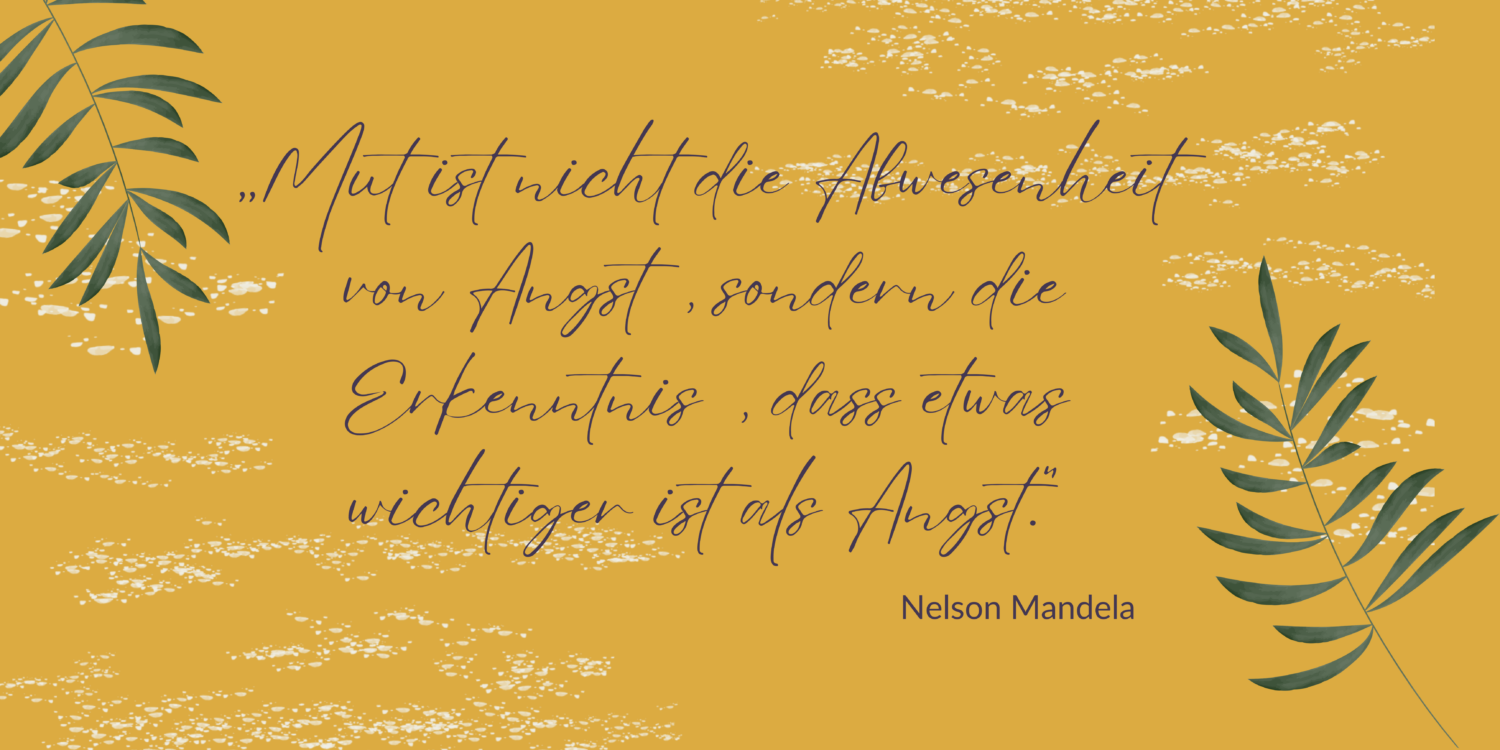 „Mut ist nicht die Abwesenheit
von Angst , sondern die
Erkenntnis , dass etwas
wichtiger ist als Angst".
Nelson Mandela